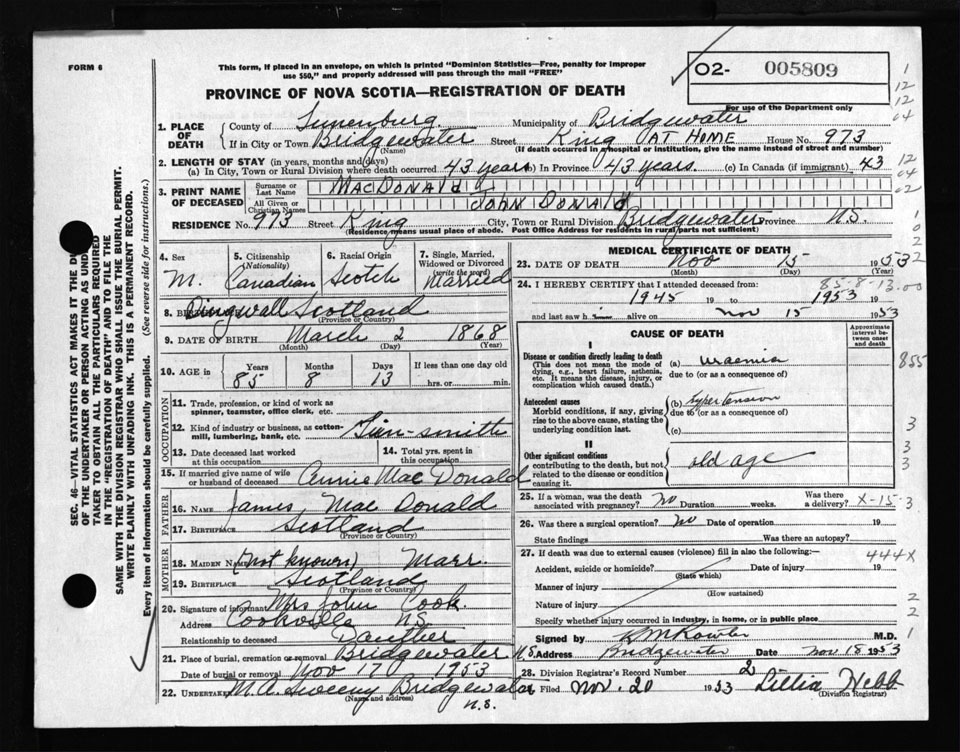 FORM 6
This form, if placed in an envelope, on which is printed "Dominion Statistics—Free, penalty for improper
use $50," and properly addressed will pass through the mail "FREE"
O2- 005809
For use of the Department only
PROVINCE OF NOVA SCOTIA—REGISTRATION OF DEATH
1. PLACE OF DEATH { County of Lunenburg Municipality of Bridgewater
If in City or Town Bridgewater Street King AT HOME House No. 973
(Name) (If death occurred in a hospital or institution, give the name instead of street and number)
2. LENGTH OF STAY (in years, months and days)
(a) In City, Town or Rural Division where death occurred 43 years (b) In Province 43 years. (c) In Canada (if immigrant) 43
3. PRINT NAME OF DECEASED { Surname or Last Name MacDonald
All Given or Christian Names John Donald
RESIDENCE No. 973 Street King City, Town or Rural Division Bridgewater Province N.S.
(Residence means usual place of abode. Post Office Address for residents in rural parts not sufficient)
4. Sex M.
5. Citizenship (Nationality) Canadian
6. Racial Origin Scotch
7. Single, Married, Widowed or Divorced (write the word) Married
8. Dingwall Scotland
(Province or Country)
9. DATE OF BIRTH March 2 1868
(Month) (Day) (Year)
10. AGE in { Years 85 Months 8 Days 13 If less than one day old
hrs. or min.
OCCUPATION
11. Trade, profession, or kind of work as spinner, teamster, office clerk, etc.
12. Kind of industry or business, as cotton-mill, lumbering, bank, etc. Gun-smith
13. Date deceased last worked at this occupation
14. Total yrs. spent in this occupation
15. If married give name of wife or husband of deceased Annie Mac Donald
FATHER
16. NAME James Mac Donald
17. BIRTHPLACE Scotland
(Province or Country)
MOTHER
18. MAIDEN NAME (not known) Marr.
19. BIRTHPLACE Scotland
(Province or Country)
20. Signature of informant Mrs John Cook.
Address Cookville N.S.
Relationship to deceased Dauther
21. Place of burial, cremation or removal Bridgewater N.S.
Date of burial or removal Nov 17 1953
22. Undertaker M.A. Sweeny Bridgewater
(Name and address)
N.S.
MEDICAL CERTIFICATE OF DEATH
23. DATE OF DEATH Nov 15 1953
(Month) (Day) (Year)
85-8-13.00
24. I HEREBY CERTIFY that I attended deceased from:
1945 19 to 1953 19
and last saw h alive on Nov 15 1953
CAUSE OF DEATH
Approximate interval between onset and death
I
Disease or condition directly leading to death
(This does not mean the mode of dying, e.g., heart failure, asthenia, etc. It means the disease, injury, or complication which caused death.)
(a) uraemia
due to (or as a consequence of)
Antecedent causes
Morbid conditions, if any, giving rise to the above cause, stating the underlying condition last.
(b) hypertension
due to (or as a consequence of)
(c)
II
Other significant conditions
contributing to the death, but not related to the disease or condition causing it.
old age
25. If a woman, was the death associated with pregnancy? no Duration weeks. Was there a delivery? X-15-3
26. Was there a surgical operation? no Date of operation 19
State findings Was there an autopsy?
27. If death was due to external causes (violence) fill in also the following:—
444X
Accident, suicide or homicide? Date of injury 19
(State which)
Manner of injury
(How sustained)
Nature of injury
Specify whether injury occurred in industry, in home, or in public place
Signed by M.D.
Address Bridgewater Date Nov 18 1953
28. Division Registrar's Record Number 2
Filed Nov. 20 1953 Lillia Hebb
(Division Registrar)
SEC. 46—VITAL STATISTICS ACT MAKES IT THE DUTY
OF THE UNDERTAKER OR PERSON ACTING AS UNDER-
TAKER TO OBTAIN ALL THE PARTICULARS REQUIRED
IN THE "REGISTRATION OF DEATH" AND TO FILE THE
SAME WITH THE DIVISION REGISTRAR WHO SHALL ISSUE THE BURIAL PERMIT.
WRITE PLAINLY WITH UNFADING INK. THIS IS A PERMANENT RECORD.
Every item of information should be carefully supplied. (See reverse side for instructions.)
1
12
12
04
12
04
02
1
0
2
2
855
3
3
3
2
2
1